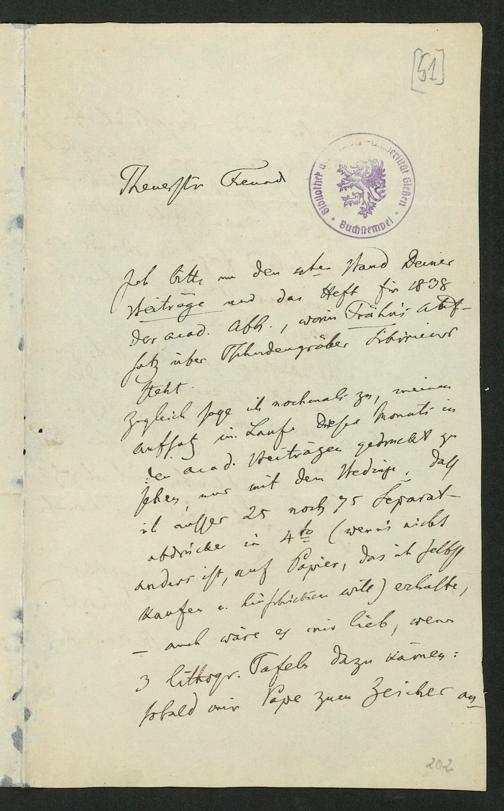 [51]
Theuerster Freund
Ich bitte um den 1ten Band Deiner
Beiträge und das Heft für 1838
der acad. Abh., worin Frähn's Auf-
satz über Tschudengräber Sibiriens
steht.
Zugleich sage ich nochmals zu, meinen
Aufsatz im Laufe dieses Monats in
den acad. Beiträgen gedruckt zu
sehen, nur mit dem Beding, daß
ich außer 25 noch 75 Separat-
abdrücke in 4to (wenn's nicht
anders ist, auf Papier, das ich selbst
kaufen u. hinschicken will) erhalte,
– auch wäre es mir lieb, wenn
3 lithogr. Tafeln dazu kämen:
sobald mir Pape zum Zeichner an
202
Bibliothek Universität Gießen
Buchstempel